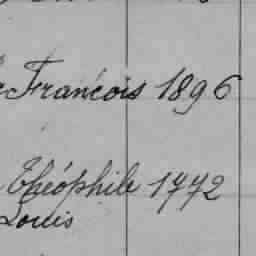 François 1896
Théophile 1772
Louis